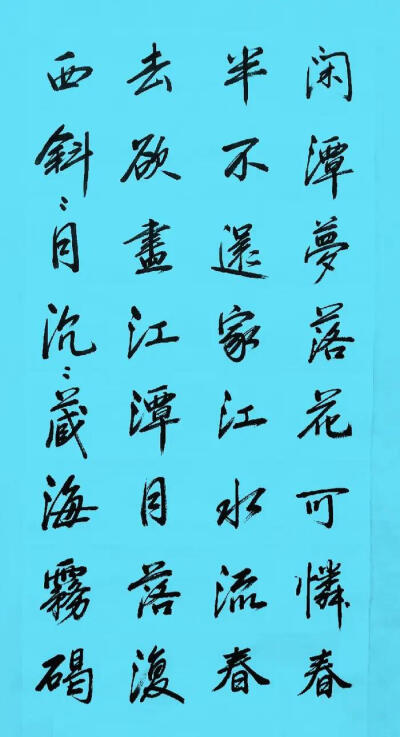 闲潭夢落花可憐春
半不還家江水流春
去欲盡江潭月落復
西斜〻月沉〻藏海霧碣